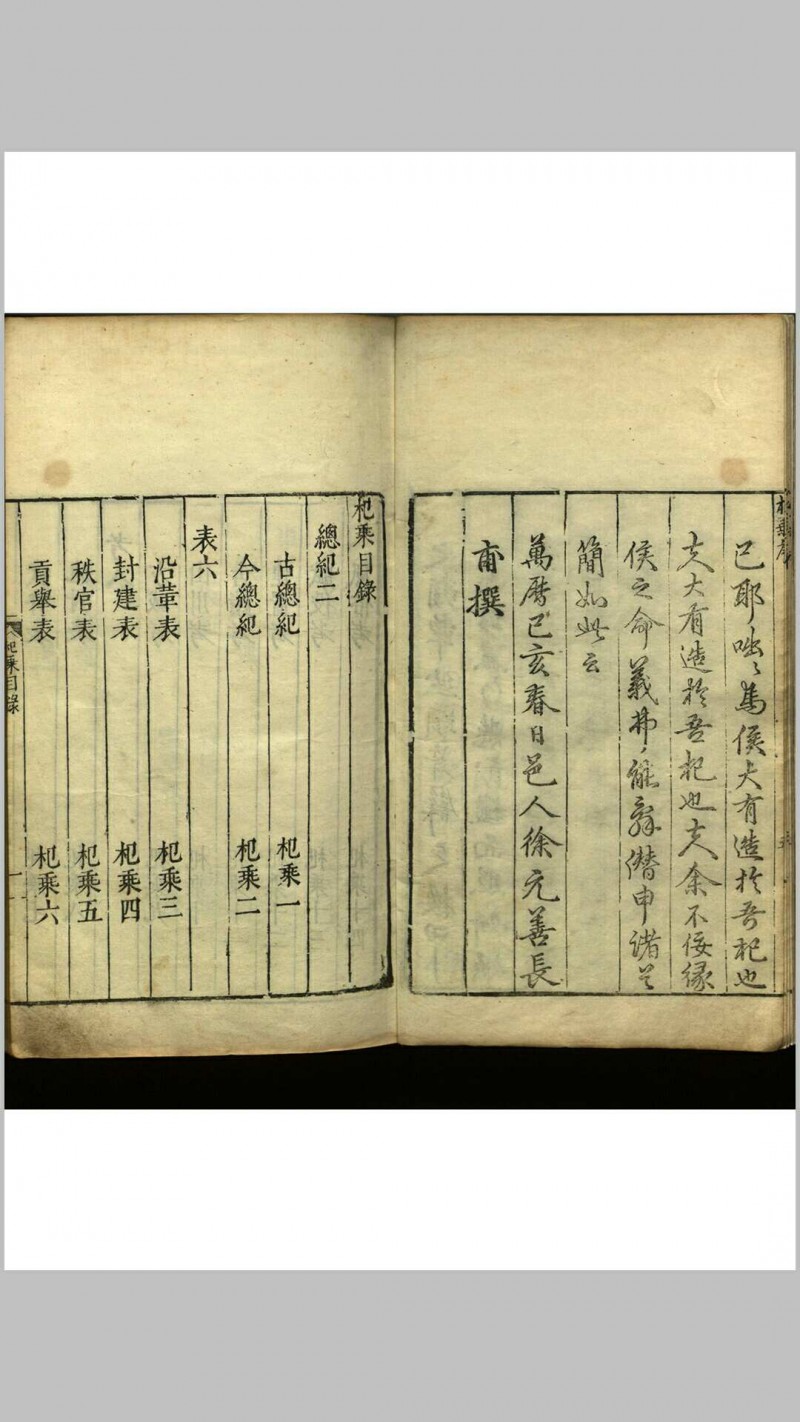 杞乘序
已耶咄咄為侯大有造扵吾杞也
夫大有造扵吾杞也夫余不佞緣
侯之命義弗能辭僣申諸
簡如此云
萬曆己亥春日邑人徐元善長
甫撰
杞乘目錄
總紀二
古總紀 杞乘一
今總紀 杞乘二
表六
沿革表 杞乘三
封建表 杞乘四
秩官表 杞乘五
貢舉表 杞乘六
杞乘目錄
一